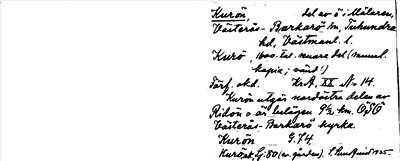 Kurön, del av ö i Mälaren,
Västerås-Barkarö sn, Tuhundra
hd, Västmanl. l.
Kurö, 1600-tal. snare del (munal.
kopia; vüid!)
Förf. okd. KrA, XX N:o 14.
Kurön utgör nordöstra delen av
Ridön o är belägen 9½ km. OSO
Västerås-Barkarö kyrka.
Kurön G.74.
Kurö